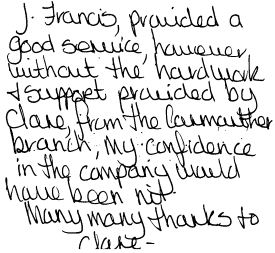 J. Francis, provided a
good service, however,
without the hardwork
& support provided by
Clare, from the Carmarthen
branch, my confidence
in the company would
have been nil.
Many many thanks to
Clare-